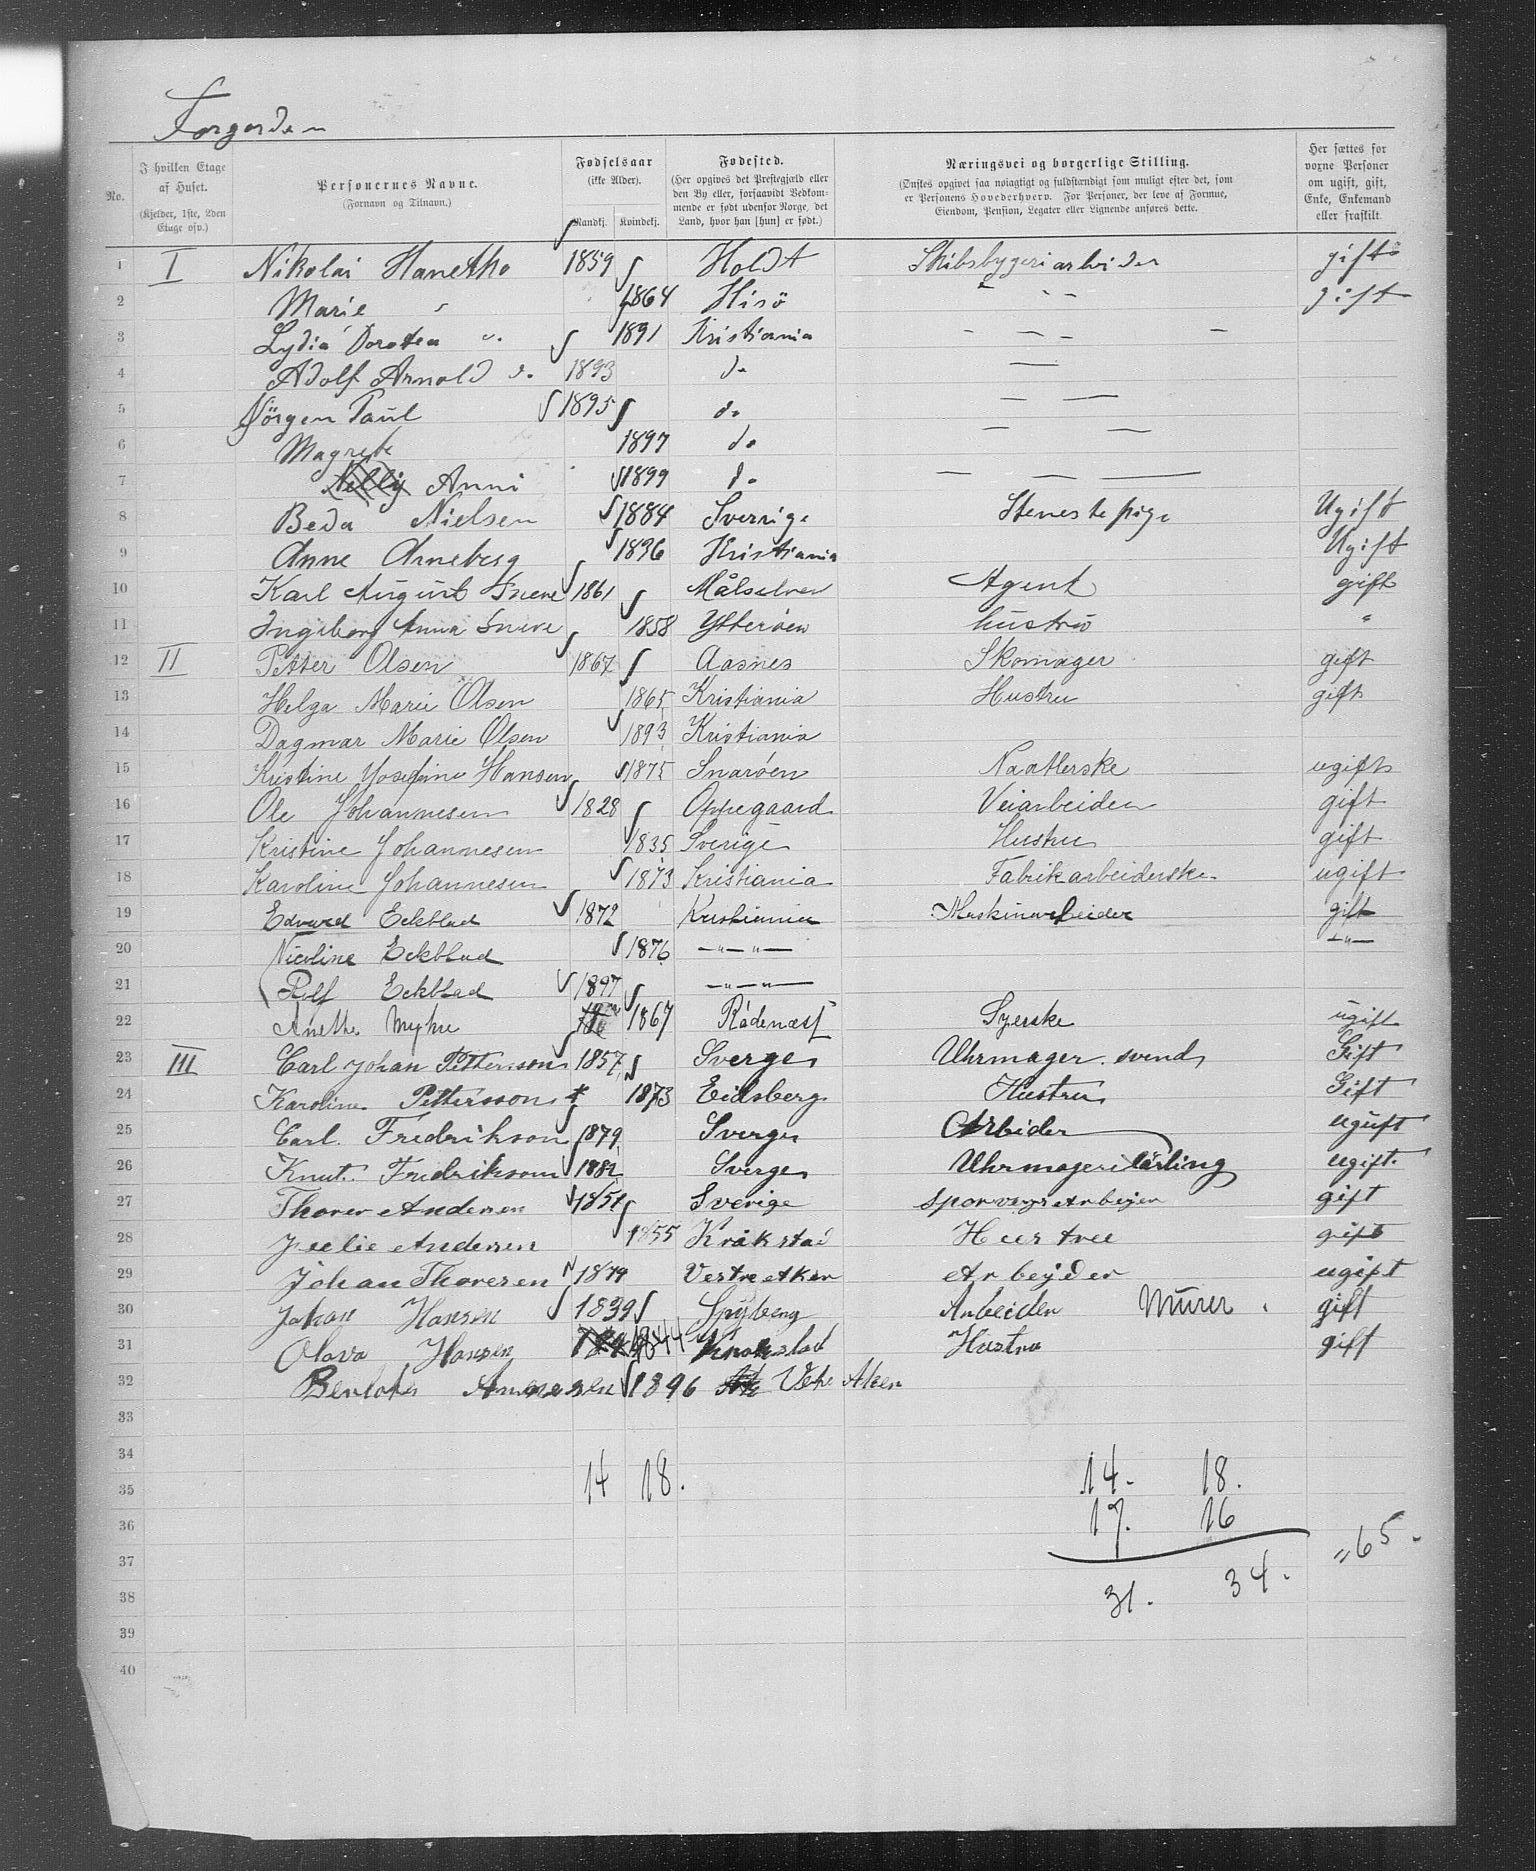 Forgarden
No.
I hvilken Etage af Huset.
(Kjelder, 1ste, 2den Etage osv.)
Personernes Navne.
(Fornavn og Tilnavn.)
Fødselsaar
(ikke Alder).
Mandkj. Kvindekj.
Fødested.
(Her opgives det Prestegjæld eller den By eller, forsaavidt Vedkommende er født udenfor Norge, det Land, hvor han [hun] er født.)
Næringsvei og borgerlige Stilling.
(Ønskes opgivet saa nøiagtigt og fuldstændigt som muligt efter det, som er Personens Hovederhverv. For Personer, der leve af Formue, Eiendom, Pension, Legater eller Lignende anføres dette.
Her sættes for vorne Personer om ugift, gift, Enke, Enkemand eller fraskilt.
1 I Nikolai Hanetho 1859 Holdt Skibsbygeriarbeider gift
2 Marie " 1864 Hisö " gift
3 Lydia Dorotea " 1891 Kristiania — — —
4 Adolf Arnold d. 1893 do —
5 Jörgen Paul 1895 do — —
6 Magrete 1897 do — —
7 Nelly Anni 1899 do — — —
8 Beda Nielsen 1884 Sverrige Tienestepige Ugift
9 Anne Arneberg 1896 Kristiania Ugift
10 Karl August Sneve 1861 Målselven Agent gift
11 Ingeborg Anna Sneve 1858 Ytterøen hustru "
12 II Petter Olsen 1867 Aasnes Skomager gift
13 Helga Marie Olsen 1865 Kristiania Hustru gift
14 Dagmar Marie Olsen 1893 Kristiania
15 Kristine Josefine Hansen 1875 Snarøen Naatlerske ugift
16 Ole Johannesen 1828 Oppegaard Veiarbeider gift
17 Kristine Johannesen 1835 Sverige Hustru gift
18 Karoline Johannesen 1873 Kristiania Fabrikarbeiderske ugift
19 Edvard Eckblad 1872 Kristiania Maskinarbeider gift
20 Nicoline Eckblad 1876 —"—"— —"—
21 Rolf Eckblad 1897 —"—"—
22 Anethe Myhre 1867 Rödenæss Syerske ugift
23 III Carl Johan Pettersson 1857 Sverge Uhrmager svend Gift
24 Karoline Pettersson 1873 Eidsberg Hustru Gift
25 Carl Fredrikson 1879 Sverge Arbeider ugift
26 Knut Fredrikson 1882 Sverge Uhrmagerilärling ugift.
27 Thorer Andersen 1851 Sverige Sporveysarbeyder gift
28 Jeelie Andersen 1855 Kråkstad Hustru gift
29 Johan Thoresen 1879 Vestre Aker Arbeyder ugift
30 Johan Hansen 1839 Spyberg Arbeider Murer gift
31 Olava Hansen 1844 Kraakstad Hustru gift
32 Andersen 1896 Vestre Aker
33
34
35
36
37
38
39
40
14 18.
14. 18.
17. 16
31. 34. "65.